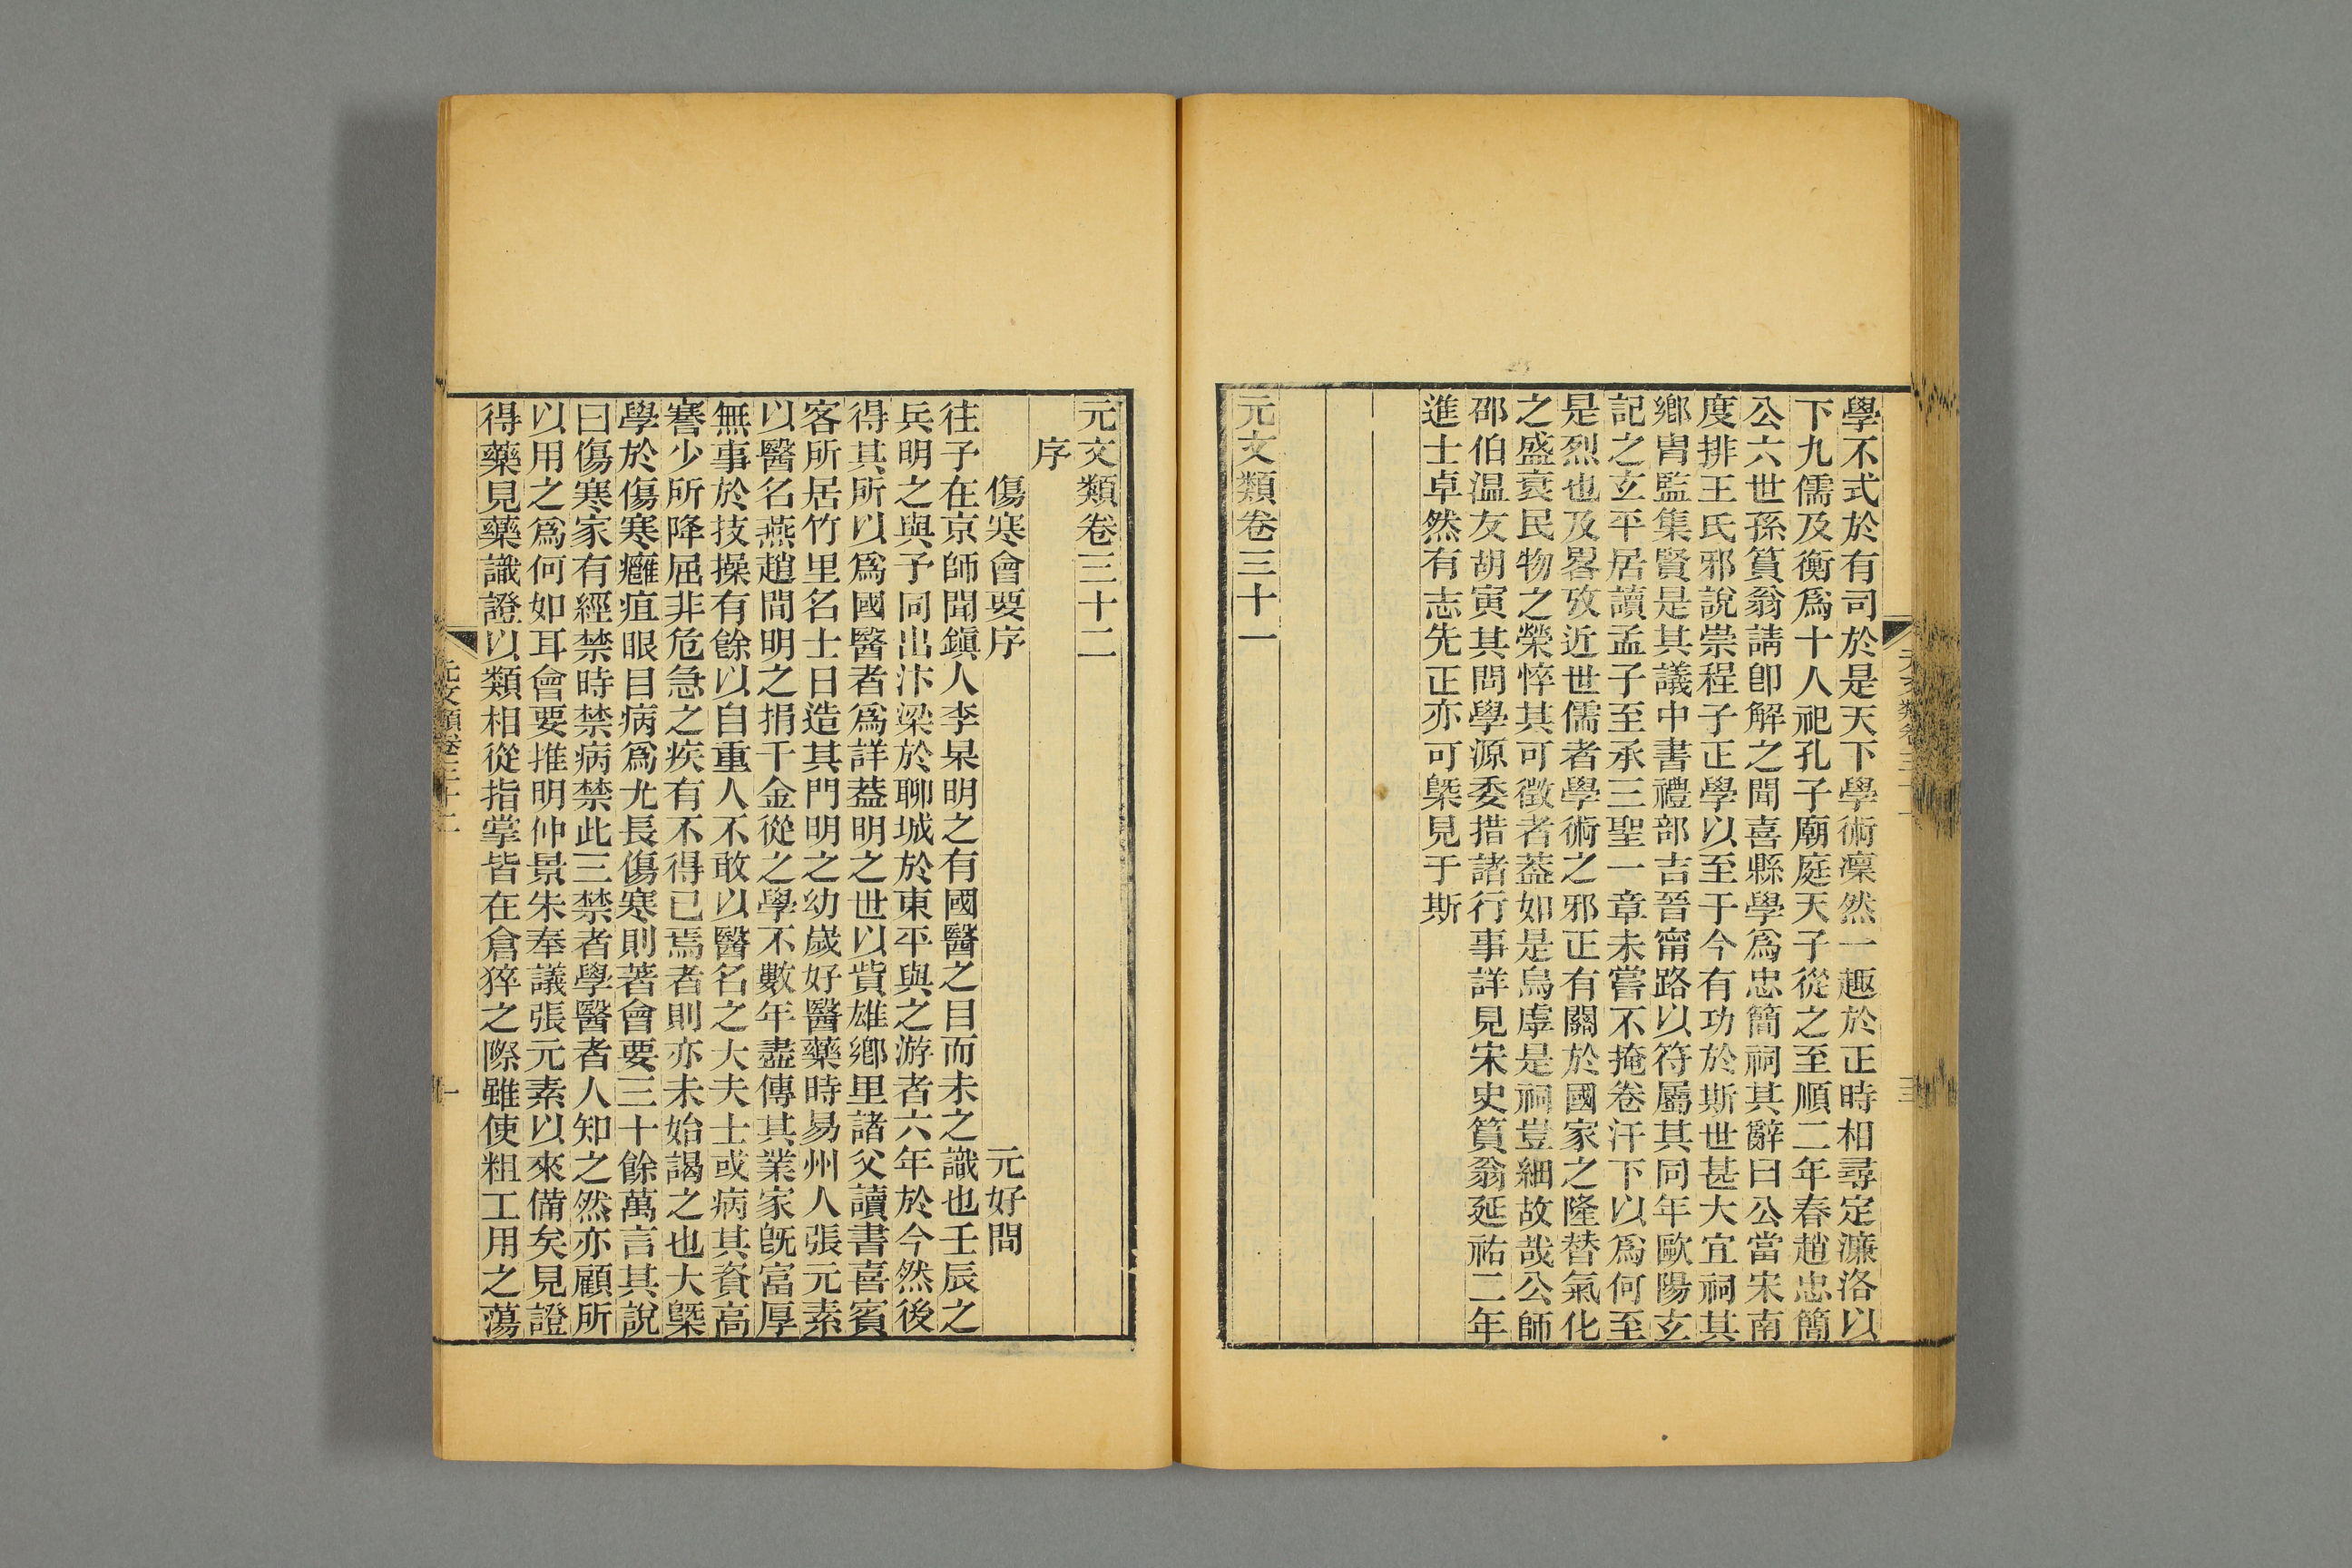 學不式於有司於是天下學術凜然一趣於正時相尋定濂洛以
下九儒及衡爲十人祀孔子廟庭天子從之至順二年春趙忠簡
公六世孫篔翁請卽解之聞喜縣學爲忠簡祠其辭曰公當宋南
度排王氏邪說崇程子正學以至于今有功於斯世甚大宜祠其
鄉冑監集賢是其議中書禮部吉晉甯路以符屬其同年歐陽玄
記之玄平居讀孟子至承三聖一章未嘗不掩卷汗下以爲何至
是烈也及畧攷近世儒者學術之邪正有關於國家之隆替氣化
之盛衰民物之榮悴其可徵者葢如是烏虖是祠豈細故哉公師
邵伯溫友胡寅其問學源委措諸行事詳見宋史篔翁延祐二年
進士卓然有志先正亦可槩見于斯
元文類卷三十一
元文類卷三十二
序
傷寒會要序 元好問
往予在京師聞鎮人李杲明之有國醫之目而未之識也壬辰之
兵明之與予同出汴梁於聊城於東平與之游者六年於今然後
得其所以爲國醫者爲詳葢明之世以貲雄鄉里諸父讀書喜賓
客所居竹里名士日造其門明之幼歲好醫藥時易州人張元素
以醫名燕趙間明之捐千金從之學不數年盡傳其業家旣富厚
無事於技操有餘以自重人不敢以醫名之大夫士或病其資高
謇少所降屈非危急之疾有不得已焉者則亦未始謁之也大槩
學於傷寒癰疽眼目病爲尤長傷寒則著會要三十餘萬言其說
曰傷寒家有經禁時禁病禁此三禁者學醫者人知之然亦顧所
以用之爲何如耳會要推明仲景朱奉議張元素以來備矣見證
得藥見藥識證以類相從指掌皆在倉猝之際雖使粗工用之蕩
元文類卷三十二
一